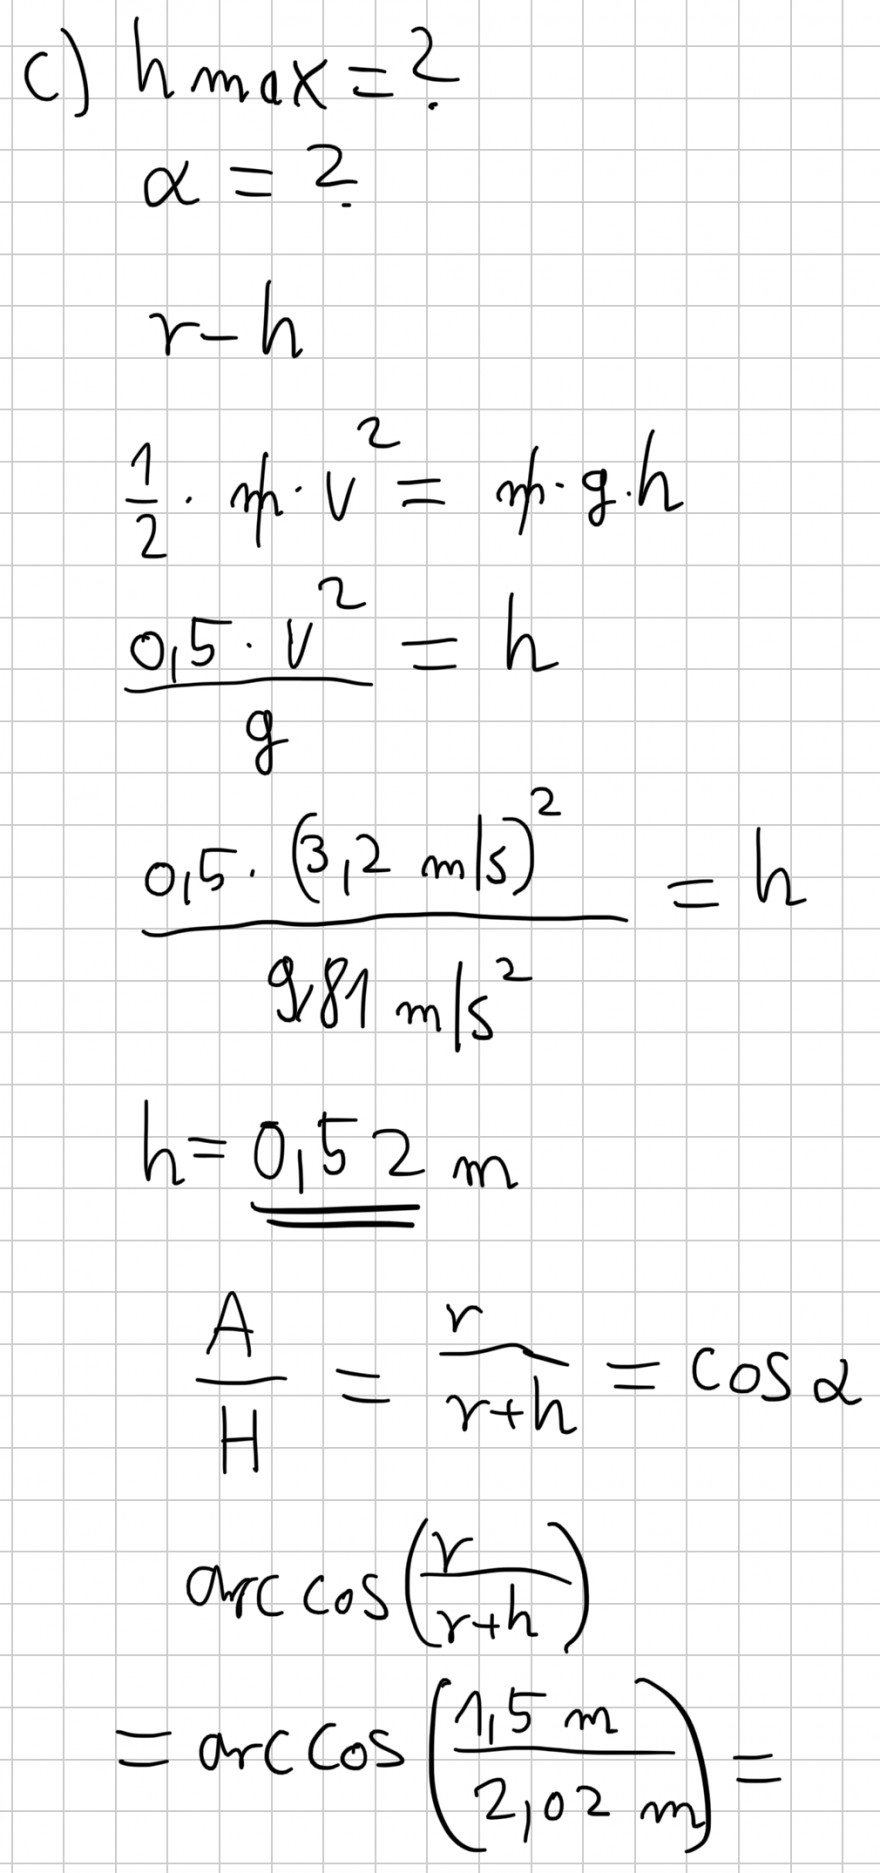 c) h max = ?
α = ?
r - h
1/2 · m · v² = m · g · h
0,5 · v² / g = h
0,5 · (3,2 m/s)² / 9,81 m/s² = h
h = 0,52 m
A/H = r/(r+h) = cos α
arccos(r/(r+h))
= arccos(1,5 m / 2,02 m) =